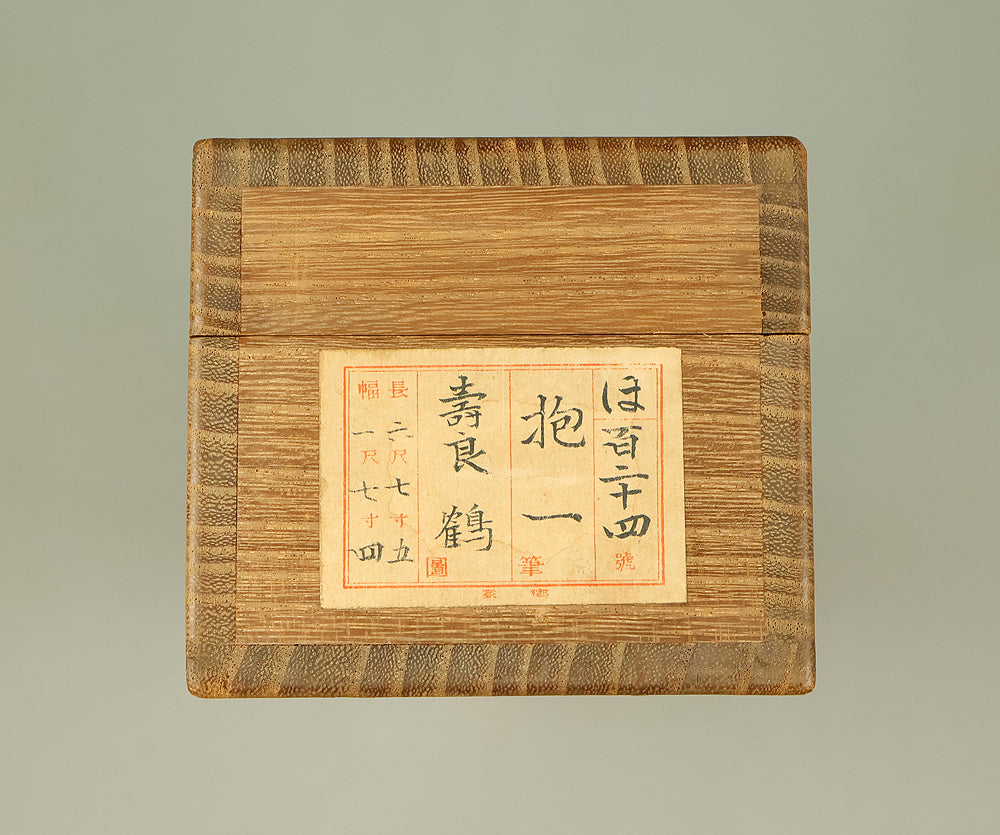 ほ百二十四號
抱一筆
壽良 鶴圖
長六尺七寸五
幅一尺七寸四